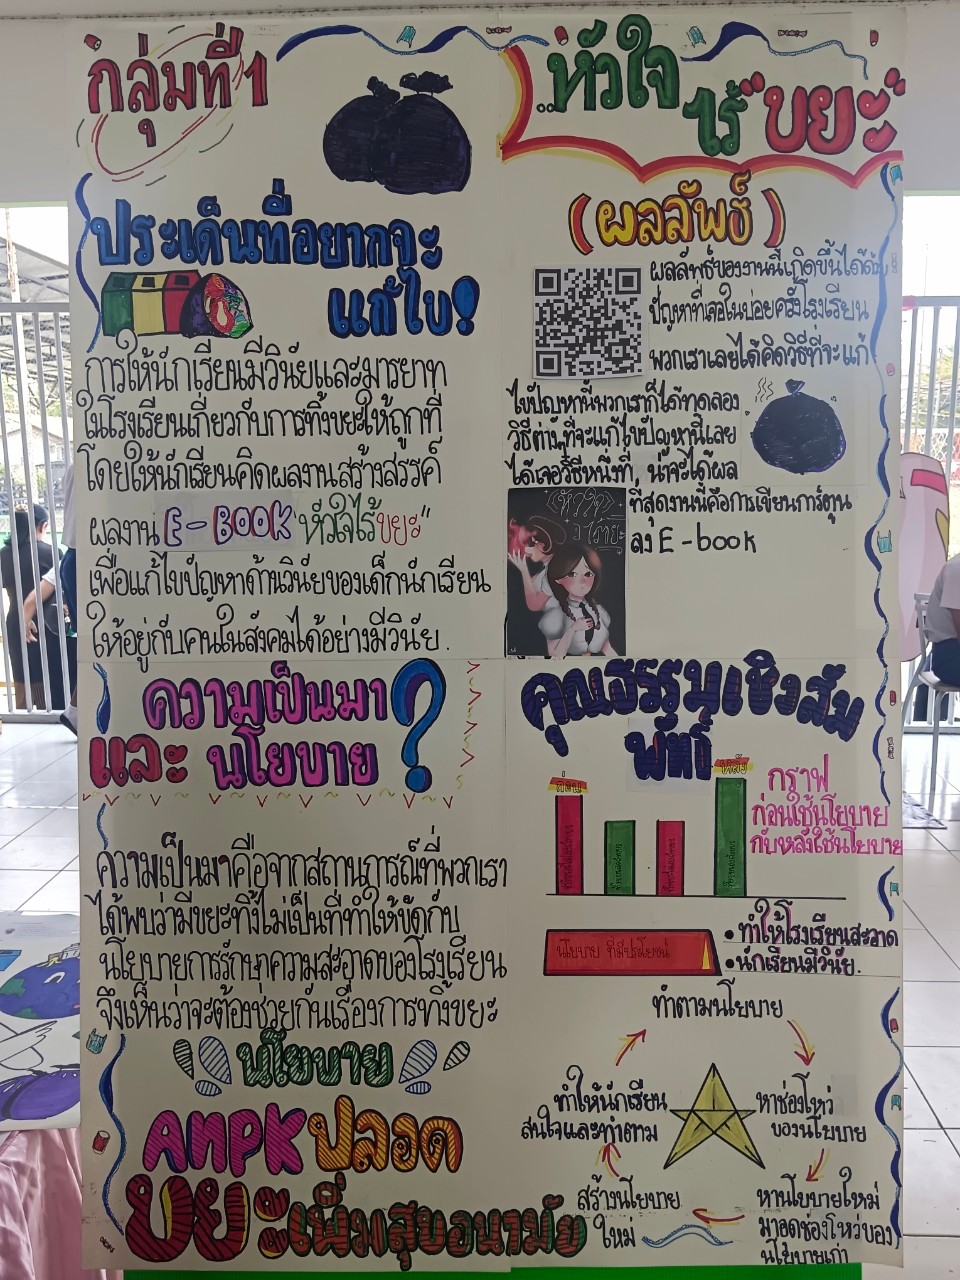 กลุ่มที่ 1
..หัวใจ
ไร้ "ขยะ"
ประเด็นที่อยากจะ
แก้ไข!
การให้นักเรียนมีวินัยและมารยาท
ในโรงเรียนเกี่ยวกับการทิ้งขยะให้ถูกที่
โดยให้นักเรียนคิดผลงานสร้างสรรค์
ผลงาน E-BOOK "หัวใจไร้ขยะ"
เพื่อแก้ไขปัญหาด้านวินัยของเด็กนักเรียน
ให้อยู่กับคนในสังคมได้อย่างมีวินัย.
ความเป็นมา
และ นโยบาย ?
ความเป็นมาคือจากสถานการณ์ที่พวกเรา
ได้พบว่ามีขยะทิ้งไม่เป็นที่ทำให้ขัดกับ
นโยบายการรักษาความสะอาดของโรงเรียน
จึงเห็นว่าจะต้องช่วยกันเรื่องการทิ้งขยะ
นโยบาย
ANPK ปลอด
ขยะเพิ่มสุขอนามัย
(ผลลัพธ์)
ผลลัพธ์ของงานนี้เกิดขึ้นได้ด้วย
ปัญหาที่เจอในบ่อยครั้งโรงเรียน
พวกเราเลยได้คิดวิธีที่จะแก้
ไขปัญหานี้พวกเราก็ได้ทดลอง
วิธีต่างๆที่จะแก้ไขปัญหานี้เลย
ได้เจอวิธีหนึ่งที่ น่าจะได้ผล
ที่สุดงานนี้คือการเขียนการ์ตูน
ลง E-book
หัวใจ
ไร้ขยะ
คุณธรรมเชิงสัม
พัทธ์
ก่อน
หลัง
กราฟ
ก่อนใช้นโยบาย
กับหลังใช้นโยบาย
นโยบาย ที่มีประโยชน์
• ทำให้โรงเรียนสะอาด
• นักเรียนมีวินัย.
ทำตามนโยบาย
หาช่องโหว่
ของนโยบาย
หานโยบายใหม่
มาอุดช่องโหว่ของ
นโยบายเก่า
สร้างนโยบาย
ใหม่
ทำให้นักเรียน
สนใจและทำตาม